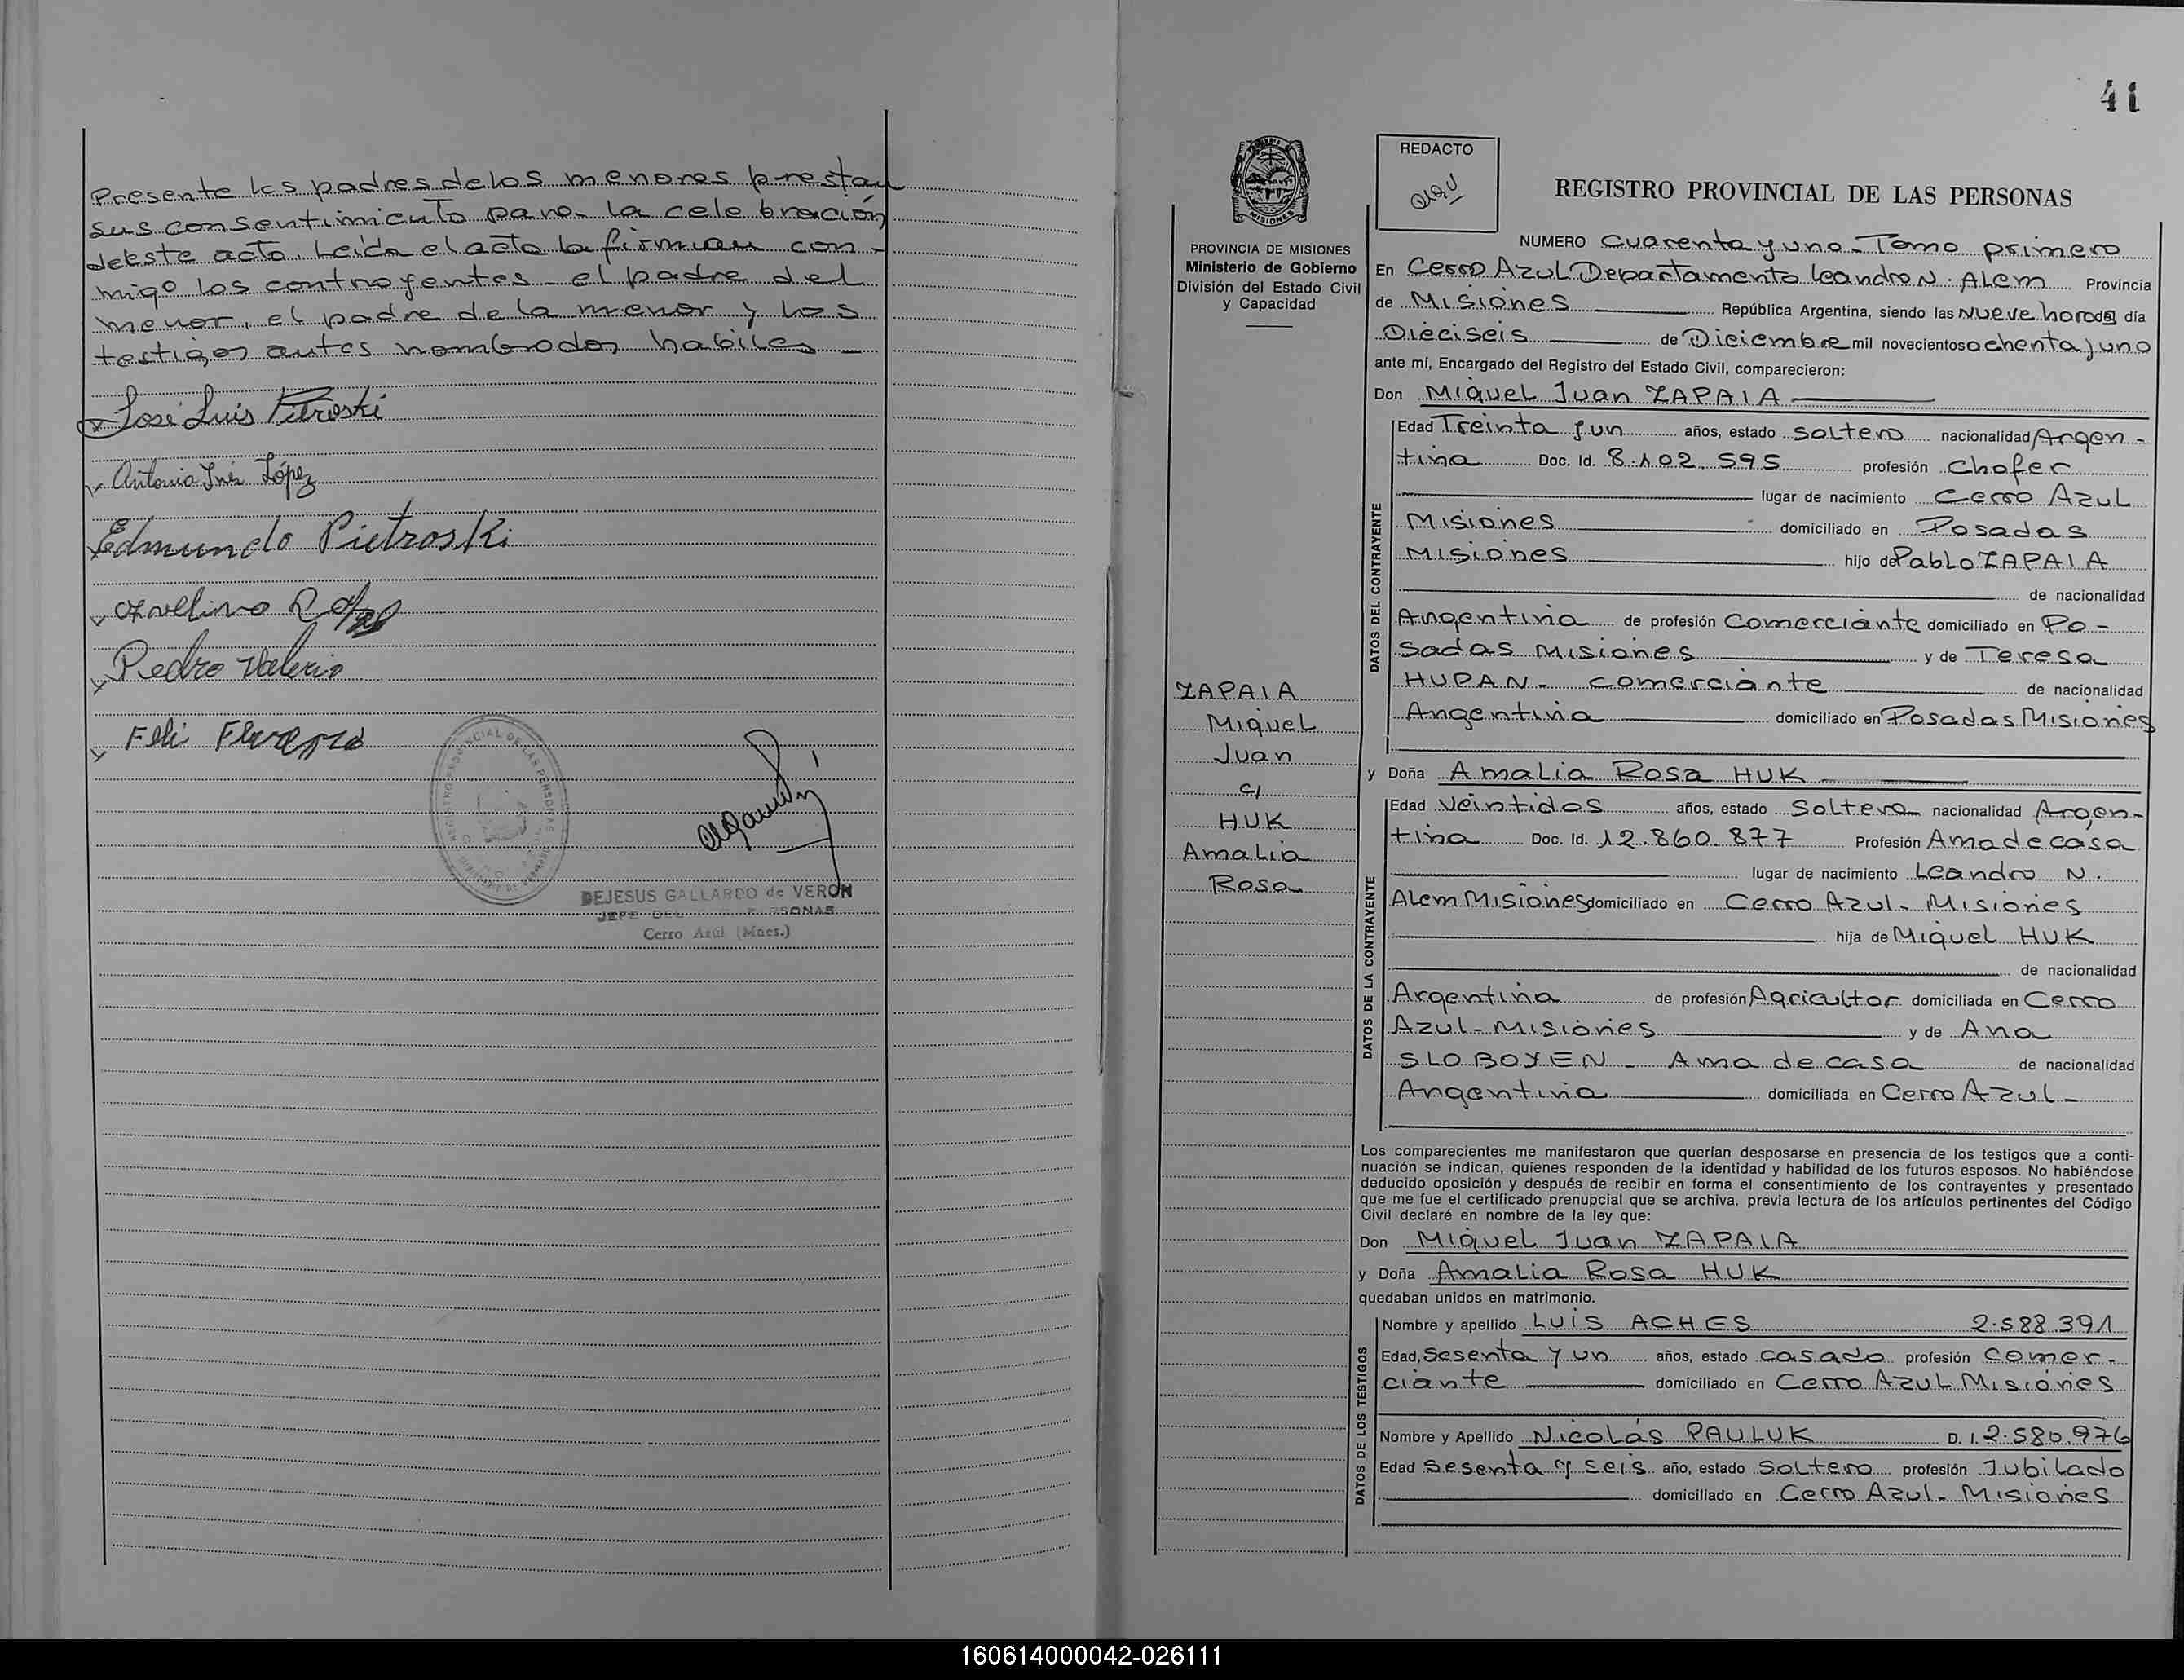 Presente los padres de los menores prestan
sus consentimiento para la celebración
de este acto. Leída el acta la firman con-
migo los contrayentes - el padre del
menor, el padre de la menor y los
testigos antes nombrados habiles
José Luis Pietroski
Antonia Inés López
Edmundo Pietroski
Avelino
Pedro Valerio
Feli
REGISTRO PROVINCIAL DE LAS PERSONAS
DEJESUS GALLARDO de VERON
JEFE DEL PERSONAS
Cerro Azúl (Mnes.)
41
REDACTO
REGISTRO PROVINCIAL DE LAS PERSONAS
MISIONES
PROVINCIA DE MISIONES
Ministerio de Gobierno
División del Estado Civil
y Capacidad
ZAPAIA
Miguel
Juan
c/
HUK
Amalia
Rosa
NUMERO Cuarenta y uno - Tomo primero
En Cerro Azul Departamento Leandro N. Alem Provincia
de Misiones República Argentina, siendo las Nueve horas del día
Dieciseis de Diciembre mil novecientos ochenta y uno
ante mí, Encargado del Registro del Estado Civil, comparecieron:
Don Miguel Juan ZAPAIA
DATOS DEL CONTRAYENTE
Edad Treinta y un años, estado soltero nacionalidad Argen-
tina Doc. Id. 8.102.595 profesión Chofer
lugar de nacimiento Cerro Azul
Misiones domiciliado en Posadas
Misiones hijo de Pablo ZAPAIA
de nacionalidad
Argentina de profesión Comerciante domiciliado en Po-
sadas Misiones y de Teresa
HUPAN - comerciante de nacionalidad
Argentina domiciliado en Posadas Misiones
y Doña Amalia Rosa HUK
DATOS DE LA CONTRAYENTE
Edad Veintidos años, estado Soltera nacionalidad Argen-
tina Doc. Id. 12.860.877 Profesión Ama de casa
lugar de nacimiento Leandro N.
Alem Misiones domiciliado en Cerro Azul - Misiones
hija de Miguel HUK
de nacionalidad
Argentina de profesión Agricultor domiciliada en Cerro
Azul - Misiones y de Ana
SLOBOYEN - Ama de casa de nacionalidad
Argentina domiciliada en Cerro Azul -
Los comparecientes me manifestaron que querían desposarse en presencia de los testigos que a conti-
nuación se indican, quienes responden de la identidad y habilidad de los futuros esposos. No habiéndose
deducido oposición y después de recibir en forma el consentimiento de los contrayentes y presentado
que me fue el certificado prenupcial que se archiva, previa lectura de los artículos pertinentes del Código
Civil declaré en nombre de la ley que:
Don Miguel Juan ZAPAIA
y Doña Amalia Rosa HUK
quedaban unidos en matrimonio.
DATOS DE LOS TESTIGOS
Nombre y apellido LUIS ACHES 2.588.391
Edad, Sesenta y un años, estado casado profesión comer-
ciante domiciliado en Cerro Azul Misiones
Nombre y Apellido Nicolás PAULUK D. I. 2.580.976
Edad Sesenta y seis año, estado Soltero profesión Jubilado
domiciliado en Cerro Azul - Misiones
160614000042-026111